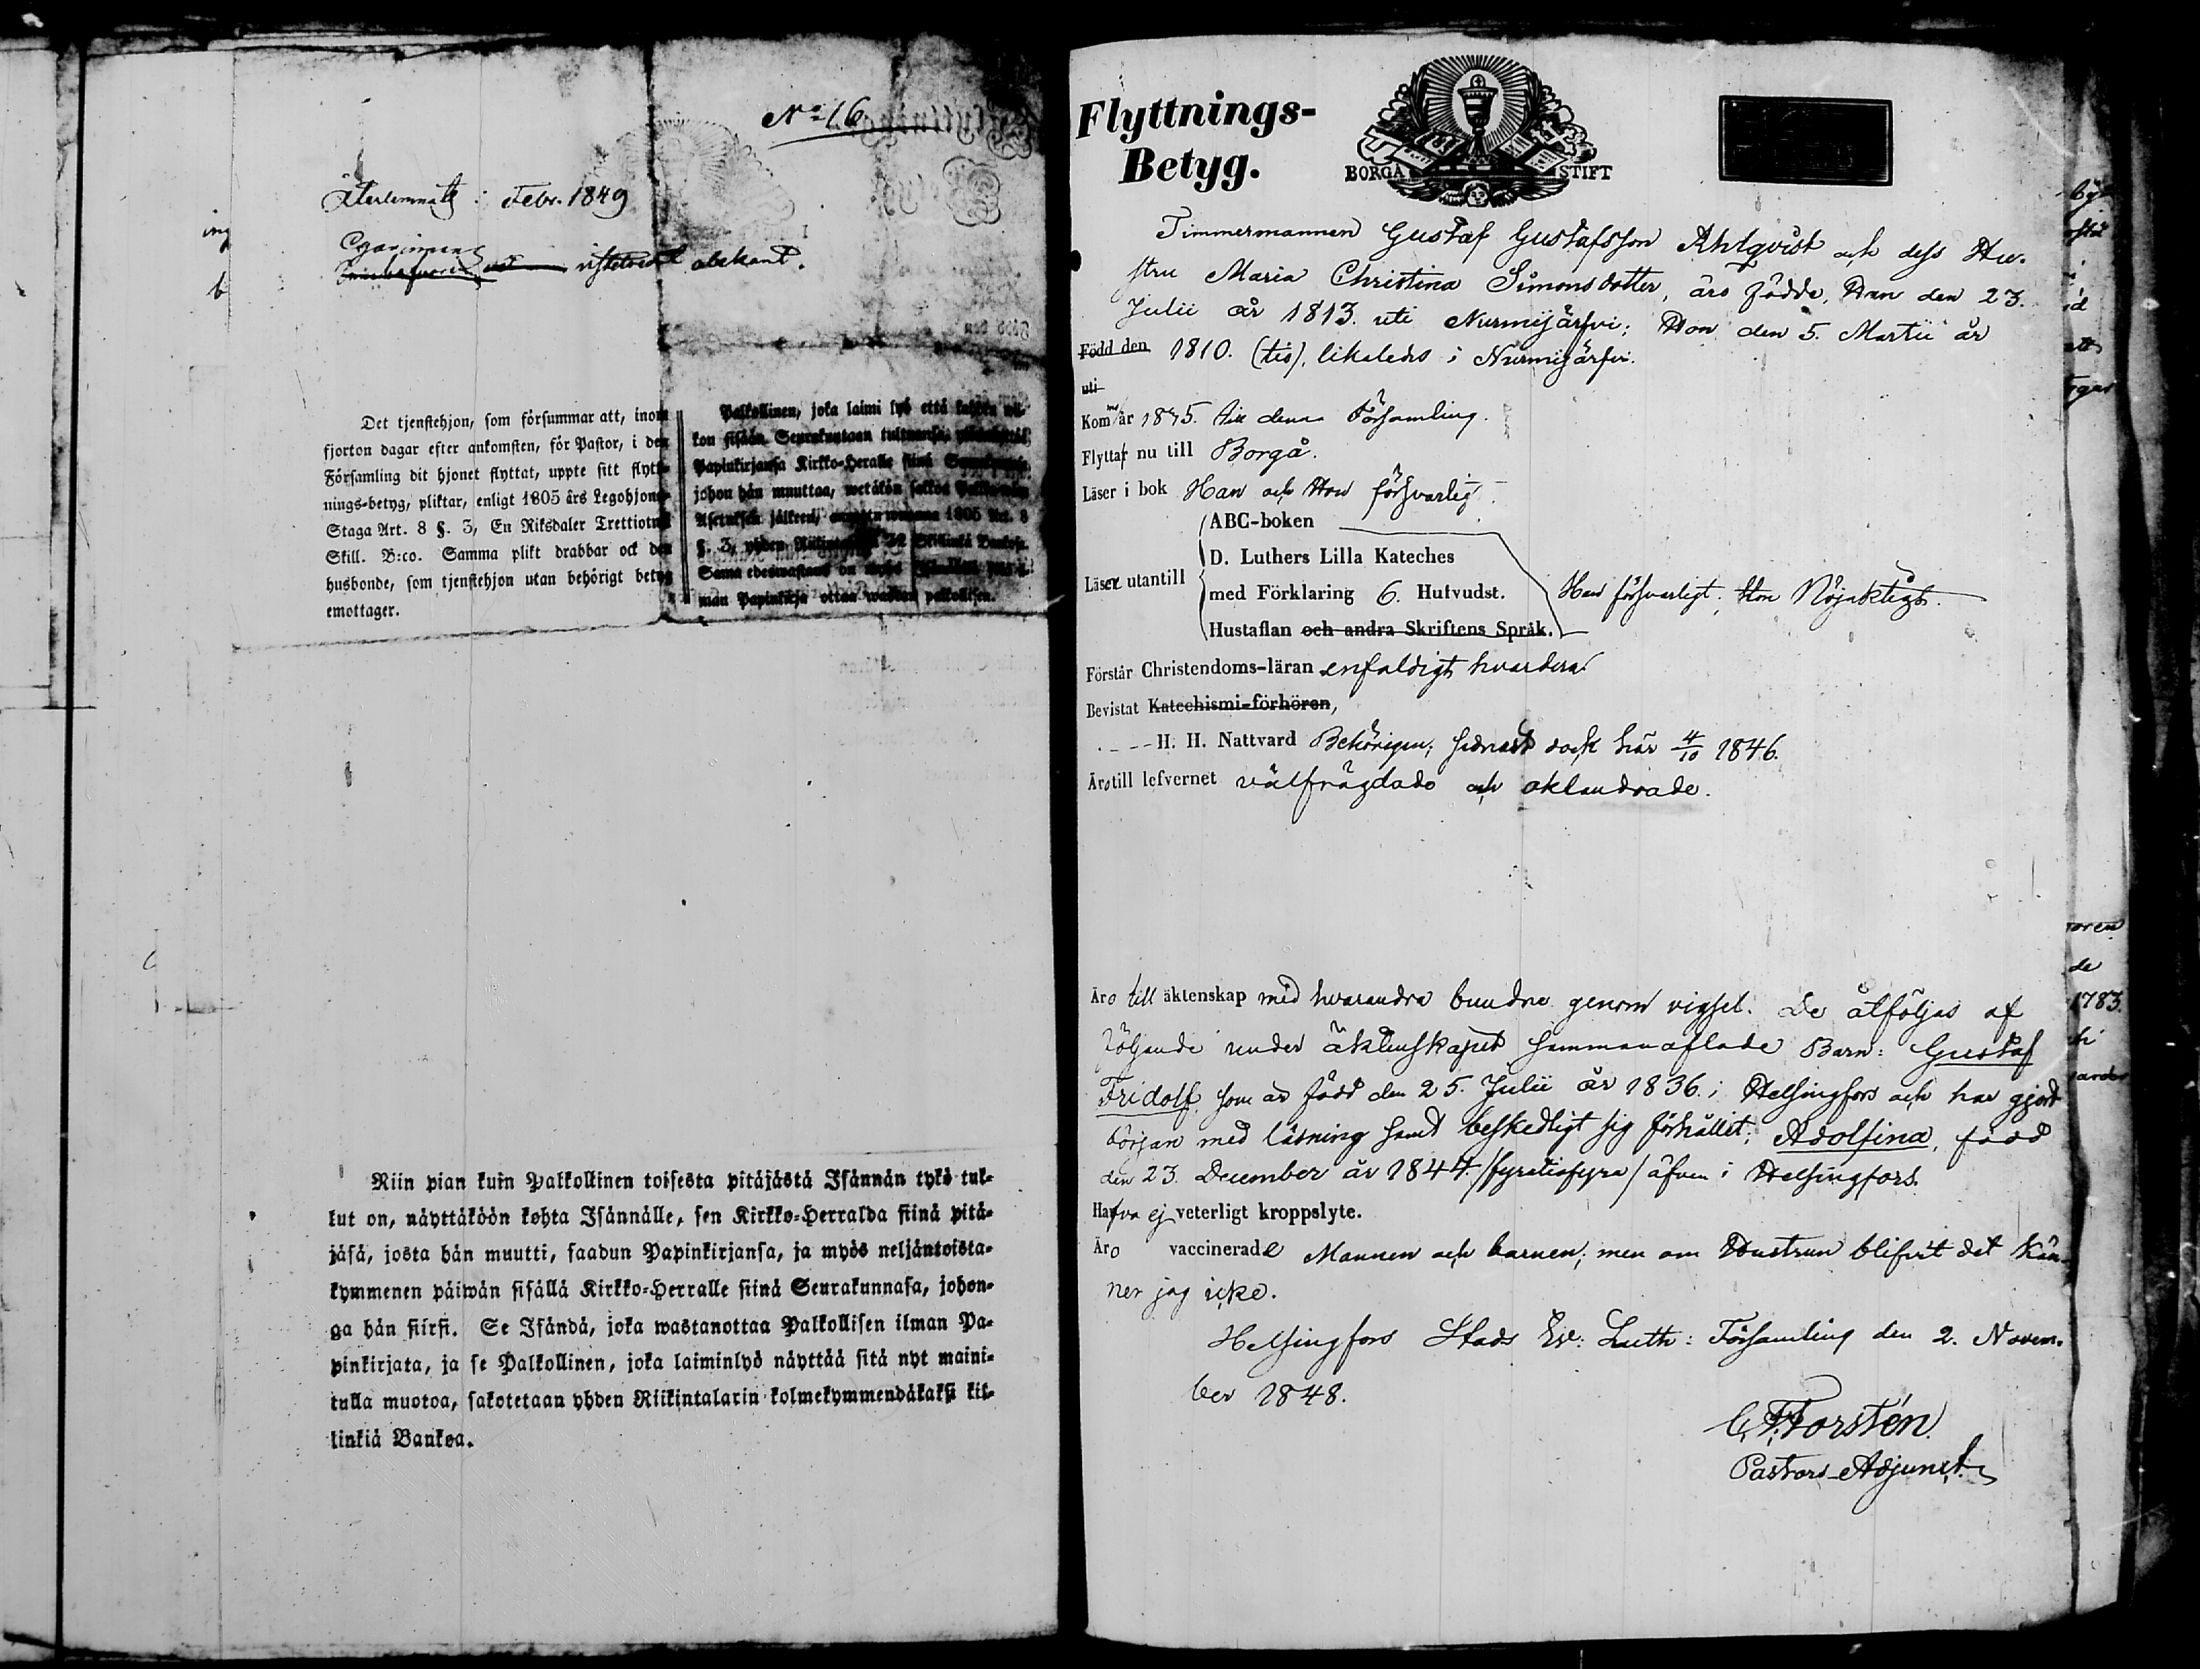 No 16
Återlemnatt i Febr. 1849
vistelseort obekant.
Det tjenstehjon, som försummar att, inom
fjorton dagar efter ankomsten, för Pastor, i den
Församling dit hjonet flyttat, uppte sitt flytt-
nings-betyg, pliktar, enligt 1805 års Legohjons-
Staga Art. 8 §. 3, En Riksdaler Trettiotvå
Skill. B:co. Samma plikt drabbar ock den
husbonde, som tjenstehjon utan behörigt betyg
emottager.
Palkollinen, joka laimi lyö että
kon sisään Seurakuntaan tultuansa,
Papinkirjansa Kirkko-Heralle siinä
johon hän muuttaa, wetäkön sakkoa
Asetuksen jälkeen, 1805 Art. 8
§. 3, yhden 32 Skillinkiä Bankosa.
Sama edeswastaus on myös
män Papinkirja ottaa wastan palkollisen.
Niin pian kuin Palkollinen toisesta pitäjästä Isännän tykö tul-
lut on, näyttäköön kohta Isännälle, sen Kirkko-Herralda siinä pitä-
jäsä, josta hän muutti, saadun Papinkirjansa, ja myös neljäntoista-
kymmenen päiwän sisällä Kirkko-Herralle siinä Seurakunnasa, johon-
ga hän siirsi. Se Isändä, joka wastanottaa Palkollisen ilman Pa-
pinkirjata, ja se Palkollinen, joka laiminlyö näyttää sitä nyt maini-
tulla muotoa, sakotetaan yhden Riikintalarin kolmekymmendäkaksi kil-
linkiä Bankoa.
Flyttnings-
Betyg.
BORGÅ STIFT
Timmermannen Gustaf Gustafsson Ahlqvist och dess Hu-
stru Maria Christina Simonsdotter, äro födde, Han den 23.
Julii år 1813. uti Nurmijärfvi; Hon den 5. Martii år
Född den 1810. (tio), likaledes i Nurmijärfvi.
uti
Kommo år 1835. till denna Församling.
Flytta nu till Borgå.
Läser i bok Han och Hon försvarligt.
ABC-boken
D. Luthers Lilla Kateches
Läser utantill
med Förklaring 6. Hufvudst. Han försvarligt. Hon Nöjaktigt.
Hustaflan och andra Skriftens Språk.
Förstår Christendoms-läran enfaldigt hvardera
Bevistat Katechismi-förhören,
H. H. Nattvard Behörigen; sednast dock här 4/10 1846.
Äro till lefvernet välfrägdade och oklandrade.
Äro till äktenskap med hvarandra bundne genom vigsel. De åtföljas af
följande under äktenskapet sammanaflade Barn: Gustaf
Fridolf, som är född den 25. Julii år 1836. i Helsingfors och har gjort
början med läsning samt beskedligt sig förhållit; Adolfina, född
den 23. December år 1844. /fyratiofyra/ äfven i Helsingfors.
Hafva ej veterligt kroppslyte.
Äro vaccinerade Mannen och barnen; men om Hustrun blifvit det kän-
ner jag icke.
Helsingfors Stads Ev: Luth: Församling den 2. Novem-
ber 1848.
C. F. Forstén.
Pastors-Adjunct.
1783.